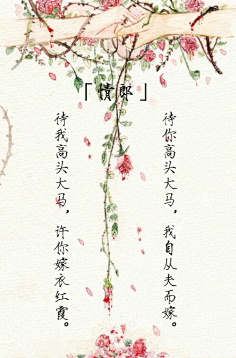 「情郎」
待你高头大马，我自从夫而嫁。
待我高头大马，许你嫁衣红霞。